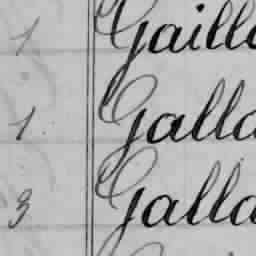 1 Gaill
1 Galla
3 Galla